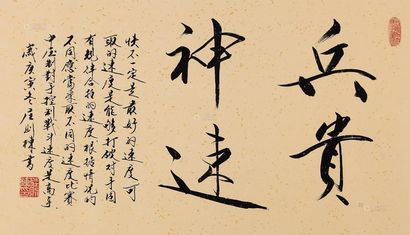 兵貴
神速
快不一定是最好的速度可
取的速度是能够打破对手固
有规律合拍的速度根据情况的
不同应当选取不同的速度比赛
中压制对手控制战斗速度是高手
岁庚寅冬庄则栋书